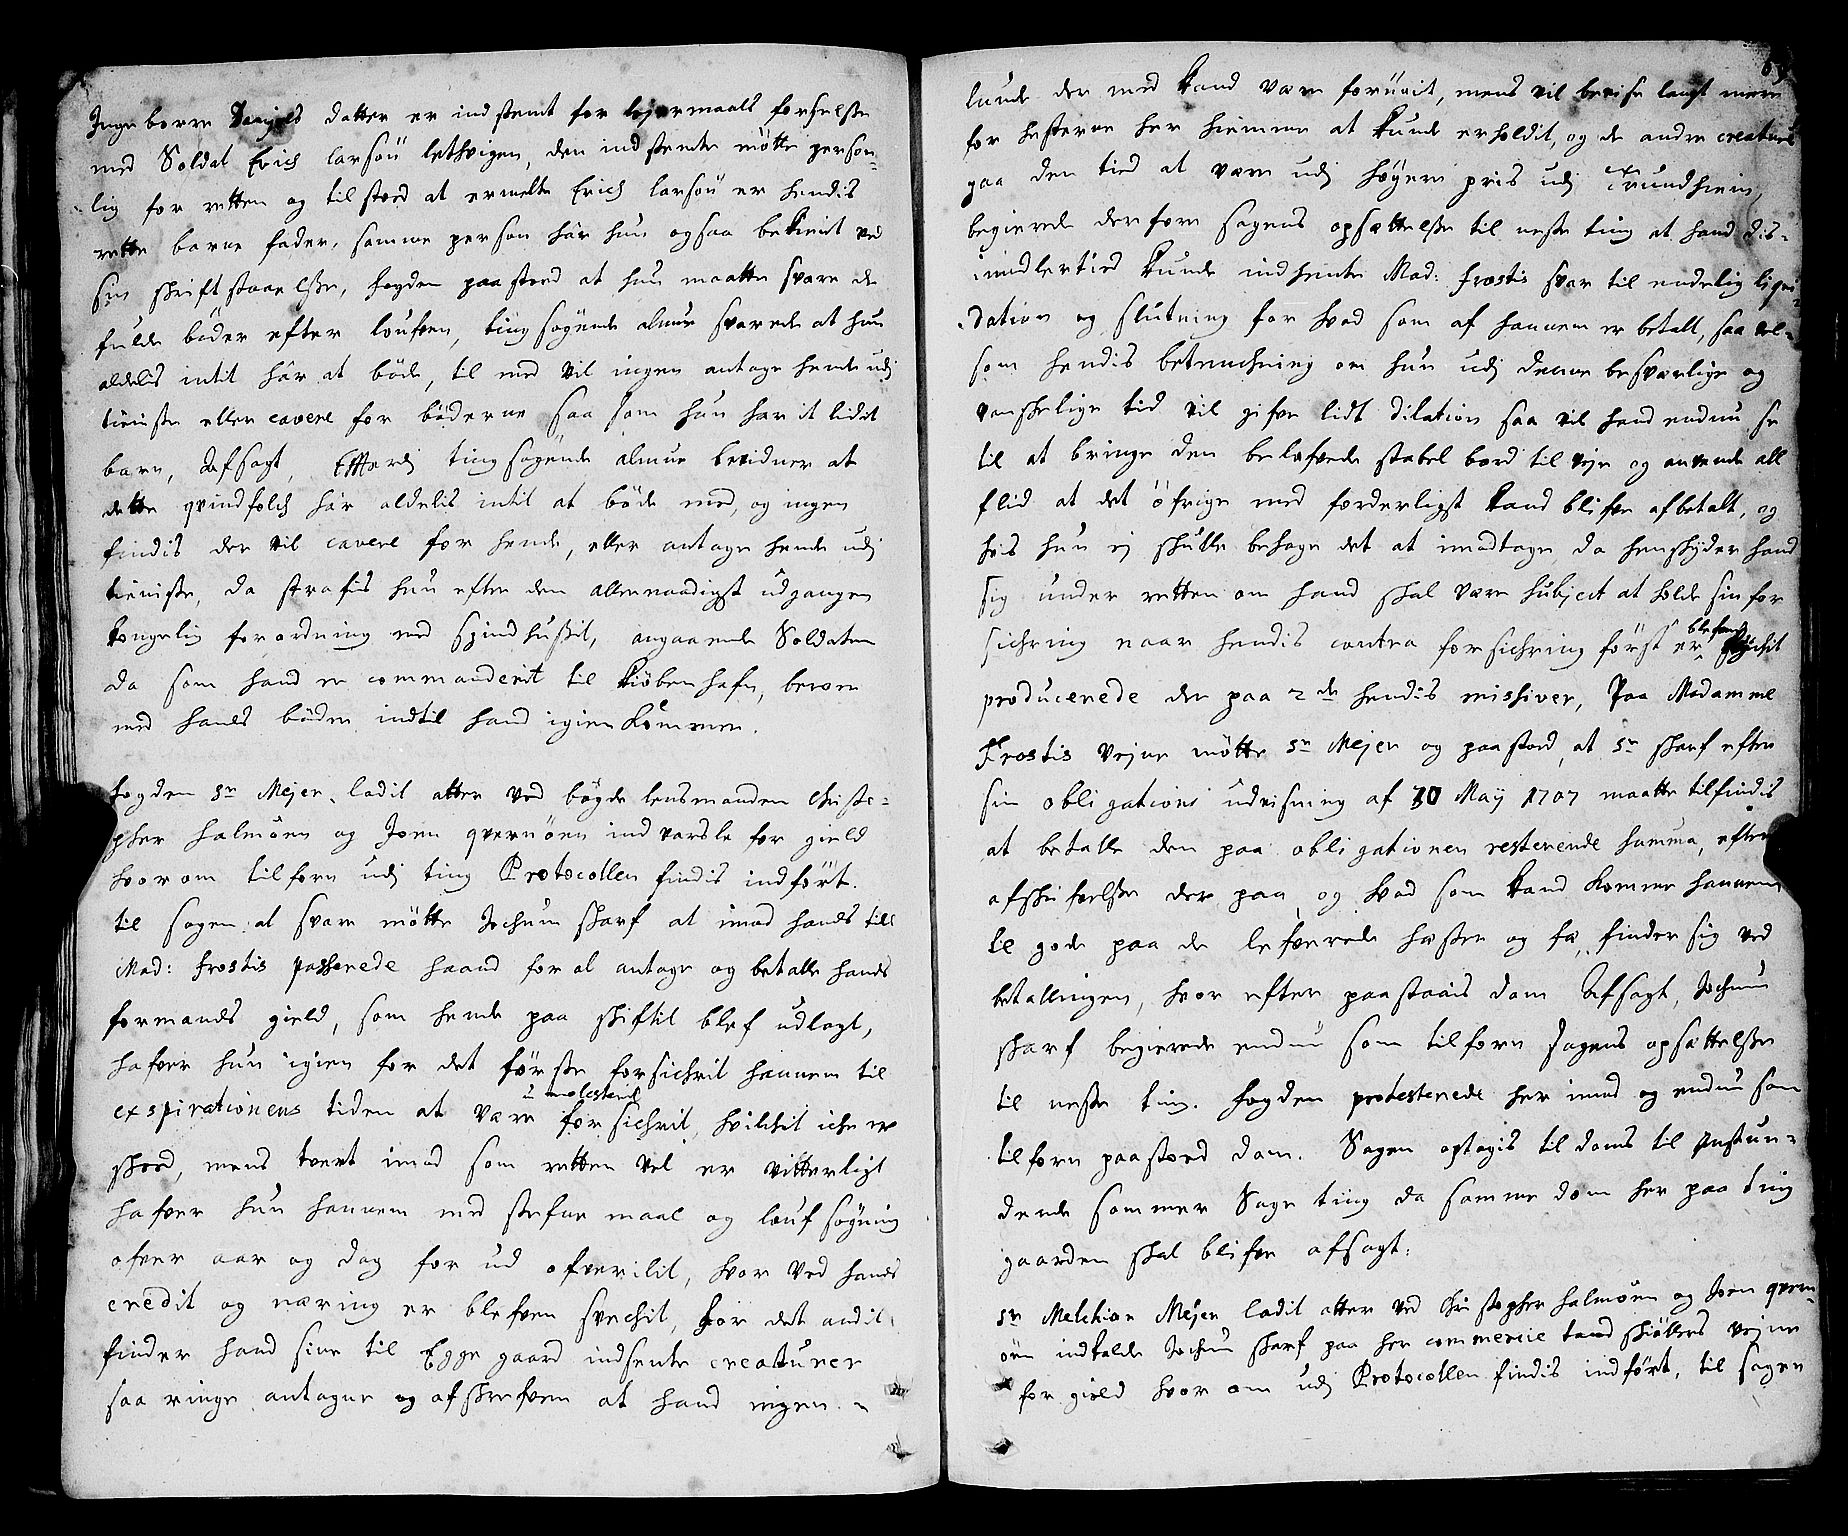 Ingeborre Daniels datter er indstemt for lejermaals forseelsse
med Soldat Erich larsøn lethvigen, den indstemte møtte person-
lig for retten og tilstoed at ermelte Erich larsøn er hendis
rette barne fader, samme person har hun ogsaa bekient ved
sin skriftstaaelsse, fogden paastoed at hun maatte svare de
fulde bøder efter loufven, tingsøgende almue svarede at hun
aldelis intit har at bøde, til med vil ingen antage hende udj
tienisse eller cavere for bøderne saa som hun har it lidit
barn, Afsagt, Efftterdj tingsøgende almue bevidner at
dette qvindfolch har aldelis intit at bøde med, og ingen
findis der vil cavere for hende, eller antage hende udj
tienisse, da straffis hun efter den allernaadigst udgangen
kongelig forordning med spindhussit, angaaende Soldaten
da som hand er commanderit til kiøbenhafn, beroer
med hands bøder indtil hand igien kommer.
fogden Sr Mejer ladit atter ved bøyde lensmanden Christo-
pher halmøen og Joen qvernøen indvarsle for gield
hvorom tilforn udj ting Protocollen findis indført.
til sagen at svare møtte Jochum skarf at imod hands till
Mad: frostis passerede haand for at antage og betalle hands
formands gield, som hende paa skiftit blef udlagt,
hafver hun igien for det første forsichrit hannem til
u-molesterit
exspirationens tiden at være forsichrit, hvilchit iche er
skeed, mens tvert imod som retten vel er vitterligt
hafver hun hannem med stefne maal og louf søgning
ofver aar og dag for ud ofverilit, hvor ved hands
credit og næring er blefven svechit, for det andit
finder hand sine til Egge gaard indsente creaturer
saa ringe antagne og afskrefven at hand ingen
69
lunde der med kand være fornøyit, mens vil bevise langt mere
for hesterne her hiemme at kunde erholdit, og de andre creaturer
paa den tied at være udj høyere pris udj Trundhiem,
begierede derfore sagens opsættelsse til neste ting at hand dis-
imidlertied kunde indhente Mad: frostis svar til endelig liqui-
dation og slutning for hvad som af hannem er betalt, saa vel-
som hendis betenchning om hun udj denne besværlige og
vanskelige tid vil gifve lidt dilation saa vil hand endnu se
til at bringe den belofvede stabel bord til veje og anvende all
flid at det øfrige med forderligst kand blifve afbetalt, og
hvis hun ej skulle behage det at imodtage da henskyder hand
sig under retten om hand skal være subject at holde sin for
sichring naar hendis contra forsichring først er blefven
producerede der paa 2de hendis missiver, Paa Madamme
Frostis vejne møtte Sr Mejer og paastod at Sr skarf efter
sin obligations udvisning af 30 Maij 1707 maatte tilfindis
at betalle den paa obligationen resterende summa, efter
afskrifvelsse der paa, og hvad som kand komme hannem
te gode paa de lefverede hester og fæ, finder sig ved
betallingen, hvor efter paastaais dom Afsagt, Jochum
skarf begierede endnu som tilforn sagens opsættelsse
til neste ting. fogden protesterede her imod og endnu som
tilforn paastoed dom. Sagen optagis til doms til instun-
dende sommer Sage ting da samme dom her paa ting
gaarden skal blifve afsagt:
Sr Melchior Mejer ladit atter ved Christopher halmøen og Joen qvern-
øen indkalde Jochum skarf paa her commercie raad skiøllers vejne
for gield hvor om udj Protocollen findis indført, til sagen